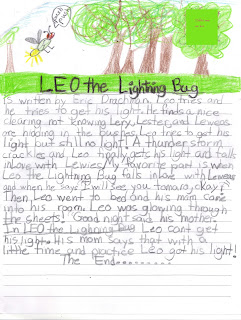 LEO the Lightning Bug
Is written by Eric Drachman. Leo tries and
he tries to get his light. He finds a nice
clearing not knowing Lary, Lester, and Lewees
are hiding in the bushes. Leo tries to get his
light but still no light! A thunder storm
crackles and Leo finally gets his light and falls
in love with Lewies. My favorite part is when
Leo the Lightning Bug falls in love with Lewees
and when he says I will see you tomaro, okay!
Then Leo went to bed and his mom came
into his room. Leo was glowing through
the sheets! Good night said his mother.
In LEO the Lightning Bug Leo cant get
his light. His mom says that with a
little time and practice Leo got his light!
The End